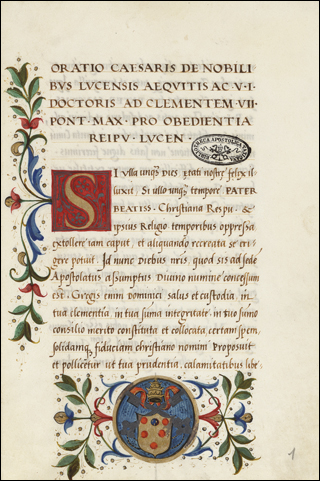 ORATIO CAESARIS DE NOBILI
BVS LVCENSIS AEQVITIS AC V·I·
DOCTORIS AD CLEMENTEM VII·
PONT·MAX·PRO OBEDIENTIA
REIPV·LVCEN·
SI ulla unq̃ dies ętati nostrę felix il
luxit, Si ullo unq̃ tempore PATER
BEATISS· Christiana Respu· &
ipsius Religio temporibus oppressa
extollere iam caput, et aliquando recreata se eri-
gere potuit. Id nunc diebus nr̃is quod sis ad sede
Apostolatus assumptus Divino numine concessum
est. Gregis enim dominici salus et custodia, in
tua clementia, in tua summa integritate, in tuo summo
consilio merito constituta et collocata, certam spem,
solidamq; fiduciam christiano nomini Proposuit
et pollicetur ut tua prudentia, calamitatibus libe-
1